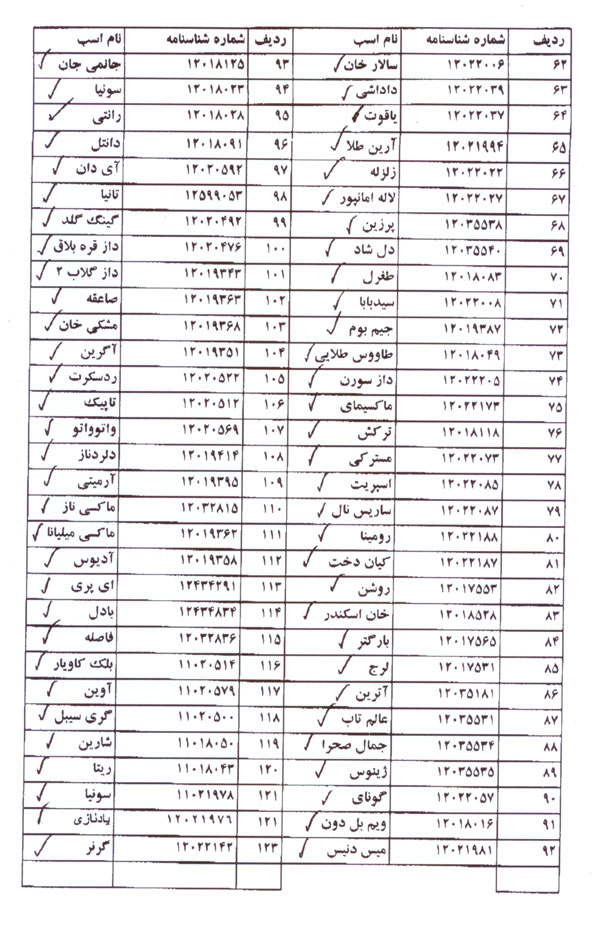 ردیف شماره شناسنامه نام اسب ردیف شماره شناسنامه نام اسب
۶۲ ۱۲۰۲۲۰۰۶ سالار خان ۹۳ ۱۲۰۱۸۱۲۵ جانمی جان
۶۳ ۱۲۰۲۲۰۳۹ داداشی ۹۴ ۱۲۰۱۸۰۲۳ سونیا
۶۴ ۱۲۰۲۲۰۳۷ یاقوت ۹۵ ۱۲۰۱۸۰۲۸ رانتی
۶۵ ۱۲۰۲۱۹۹۴ آرین طلا ۹۶ ۱۲۰۱۸۰۹۱ دانتل
۶۶ ۱۲۰۲۲۰۲۲ زلزله ۹۷ ۱۲۰۲۰۵۹۲ آی دان
۶۷ ۱۲۰۲۲۰۲۷ لاله امانپور ۹۸ ۱۲۵۹۹۰۵۳ تانیا
۶۸ ۱۲۰۳۵۵۳۸ پرزین ۹۹ ۱۲۰۲۰۴۹۲ گینگ گلد
۶۹ ۱۲۰۳۵۵۴۰ دل شاد ۱۰۰ ۱۲۰۲۰۴۷۶ داز قره بلاق
۷۰ ۱۲۰۱۸۰۸۳ طغرل ۱۰۱ ۱۲۰۱۹۳۴۳ داز گلاب ۲
۷۱ ۱۲۰۲۲۰۰۸ سیدبابا ۱۰۲ ۱۲۰۱۹۳۶۳ صاعقه
۷۲ ۱۲۰۱۹۳۸۷ جیم بوم ۱۰۳ ۱۲۰۱۹۳۶۸ مشکی خان
۷۳ ۱۲۰۱۸۰۴۹ طاووس طلایی ۱۰۴ ۱۲۰۱۹۳۵۱ آگرین
۷۴ ۱۲۰۲۲۲۰۵ داز سورن ۱۰۵ ۱۲۰۲۰۵۲۲ ردسکرت
۷۵ ۱۲۰۲۲۱۷۳ ماکسیمای ۱۰۶ ۱۲۰۲۰۵۱۲ تاپیک
۷۶ ۱۲۰۱۸۱۱۸ ترکش ۱۰۷ ۱۲۰۲۰۵۶۹ واتوواتو
۷۷ ۱۲۰۲۲۰۷۳ مسترکی ۱۰۸ ۱۲۰۱۹۴۱۴ دلردناز
۷۸ ۱۲۰۲۲۰۸۵ اسپریت ۱۰۹ ۱۲۰۱۹۳۹۵ آرمیتی
۷۹ ۱۲۰۲۲۰۸۷ ساریس نال ۱۱۰ ۱۲۰۳۲۸۱۵ ماکسی ناز
۸۰ ۱۲۰۲۲۱۸۸ رومینا ۱۱۱ ۱۲۰۱۹۳۶۲ ماکسی میلیانا
۸۱ ۱۲۰۲۲۱۸۷ کیان دخت ۱۱۲ ۱۲۰۱۹۳۵۸ آدیوس
۸۲ ۱۲۰۱۷۵۵۳ روشن ۱۱۳ ۱۲۴۳۴۲۹۱ ای پری
۸۳ ۱۲۰۱۸۵۲۸ خان اسکندر ۱۱۴ ۱۲۴۳۴۸۳۴ بادل
۸۴ ۱۲۰۱۷۵۶۵ بارگتر ۱۱۵ ۱۲۰۳۲۸۳۶ فاصله
۸۵ ۱۲۰۱۷۵۳۱ لرج ۱۱۶ ۱۱۰۲۰۵۱۴ بلک کاویار
۸۶ ۱۲۰۳۵۱۸۱ آترین ۱۱۷ ۱۱۰۲۰۵۷۹ آوین
۸۷ ۱۲۰۳۵۵۳۱ عالم تاب ۱۱۸ ۱۱۰۲۰۵۰۰ گری سیبل
۸۸ ۱۲۰۳۵۵۳۴ جمال صحرا ۱۱۹ ۱۱۰۱۸۰۵۰ شارین
۸۹ ۱۲۰۳۵۵۳۵ ژینوس ۱۲۰ ۱۱۰۱۸۰۴۳ ریتا
۹۰ ۱۲۰۲۲۰۵۷ گونای ۱۲۱ ۱۱۰۲۱۹۷۸ سونیا
۹۱ ۱۲۰۱۸۰۱۶ ویم بل دون ۱۲۱ ۱۲۰۲۱۹۷۶ یادنازی
۹۲ ۱۲۰۲۱۹۸۱ میس دنیس ۱۲۳ ۱۲۰۲۲۱۴۲ گرنر